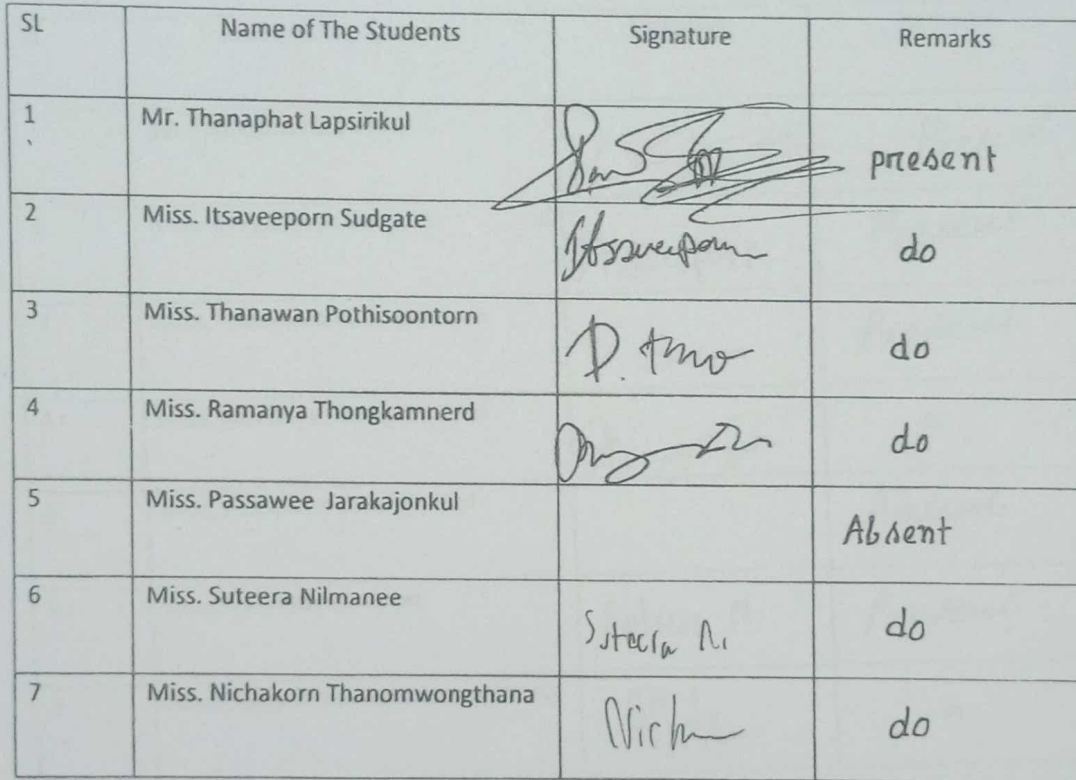 SL Name of The Students Signature Remarks
1 Mr. Thanaphat Lapsirikul present
2 Miss. Itsaveeporn Sudgate Itsaveeporn do
3 Miss. Thanawan Pothisoontorn do
4 Miss. Ramanya Thongkamnerd do
5 Miss. Passawee Jarakajonkul Absent
6 Miss. Suteera Nilmanee do
7 Miss. Nichakorn Thanomwongthana do